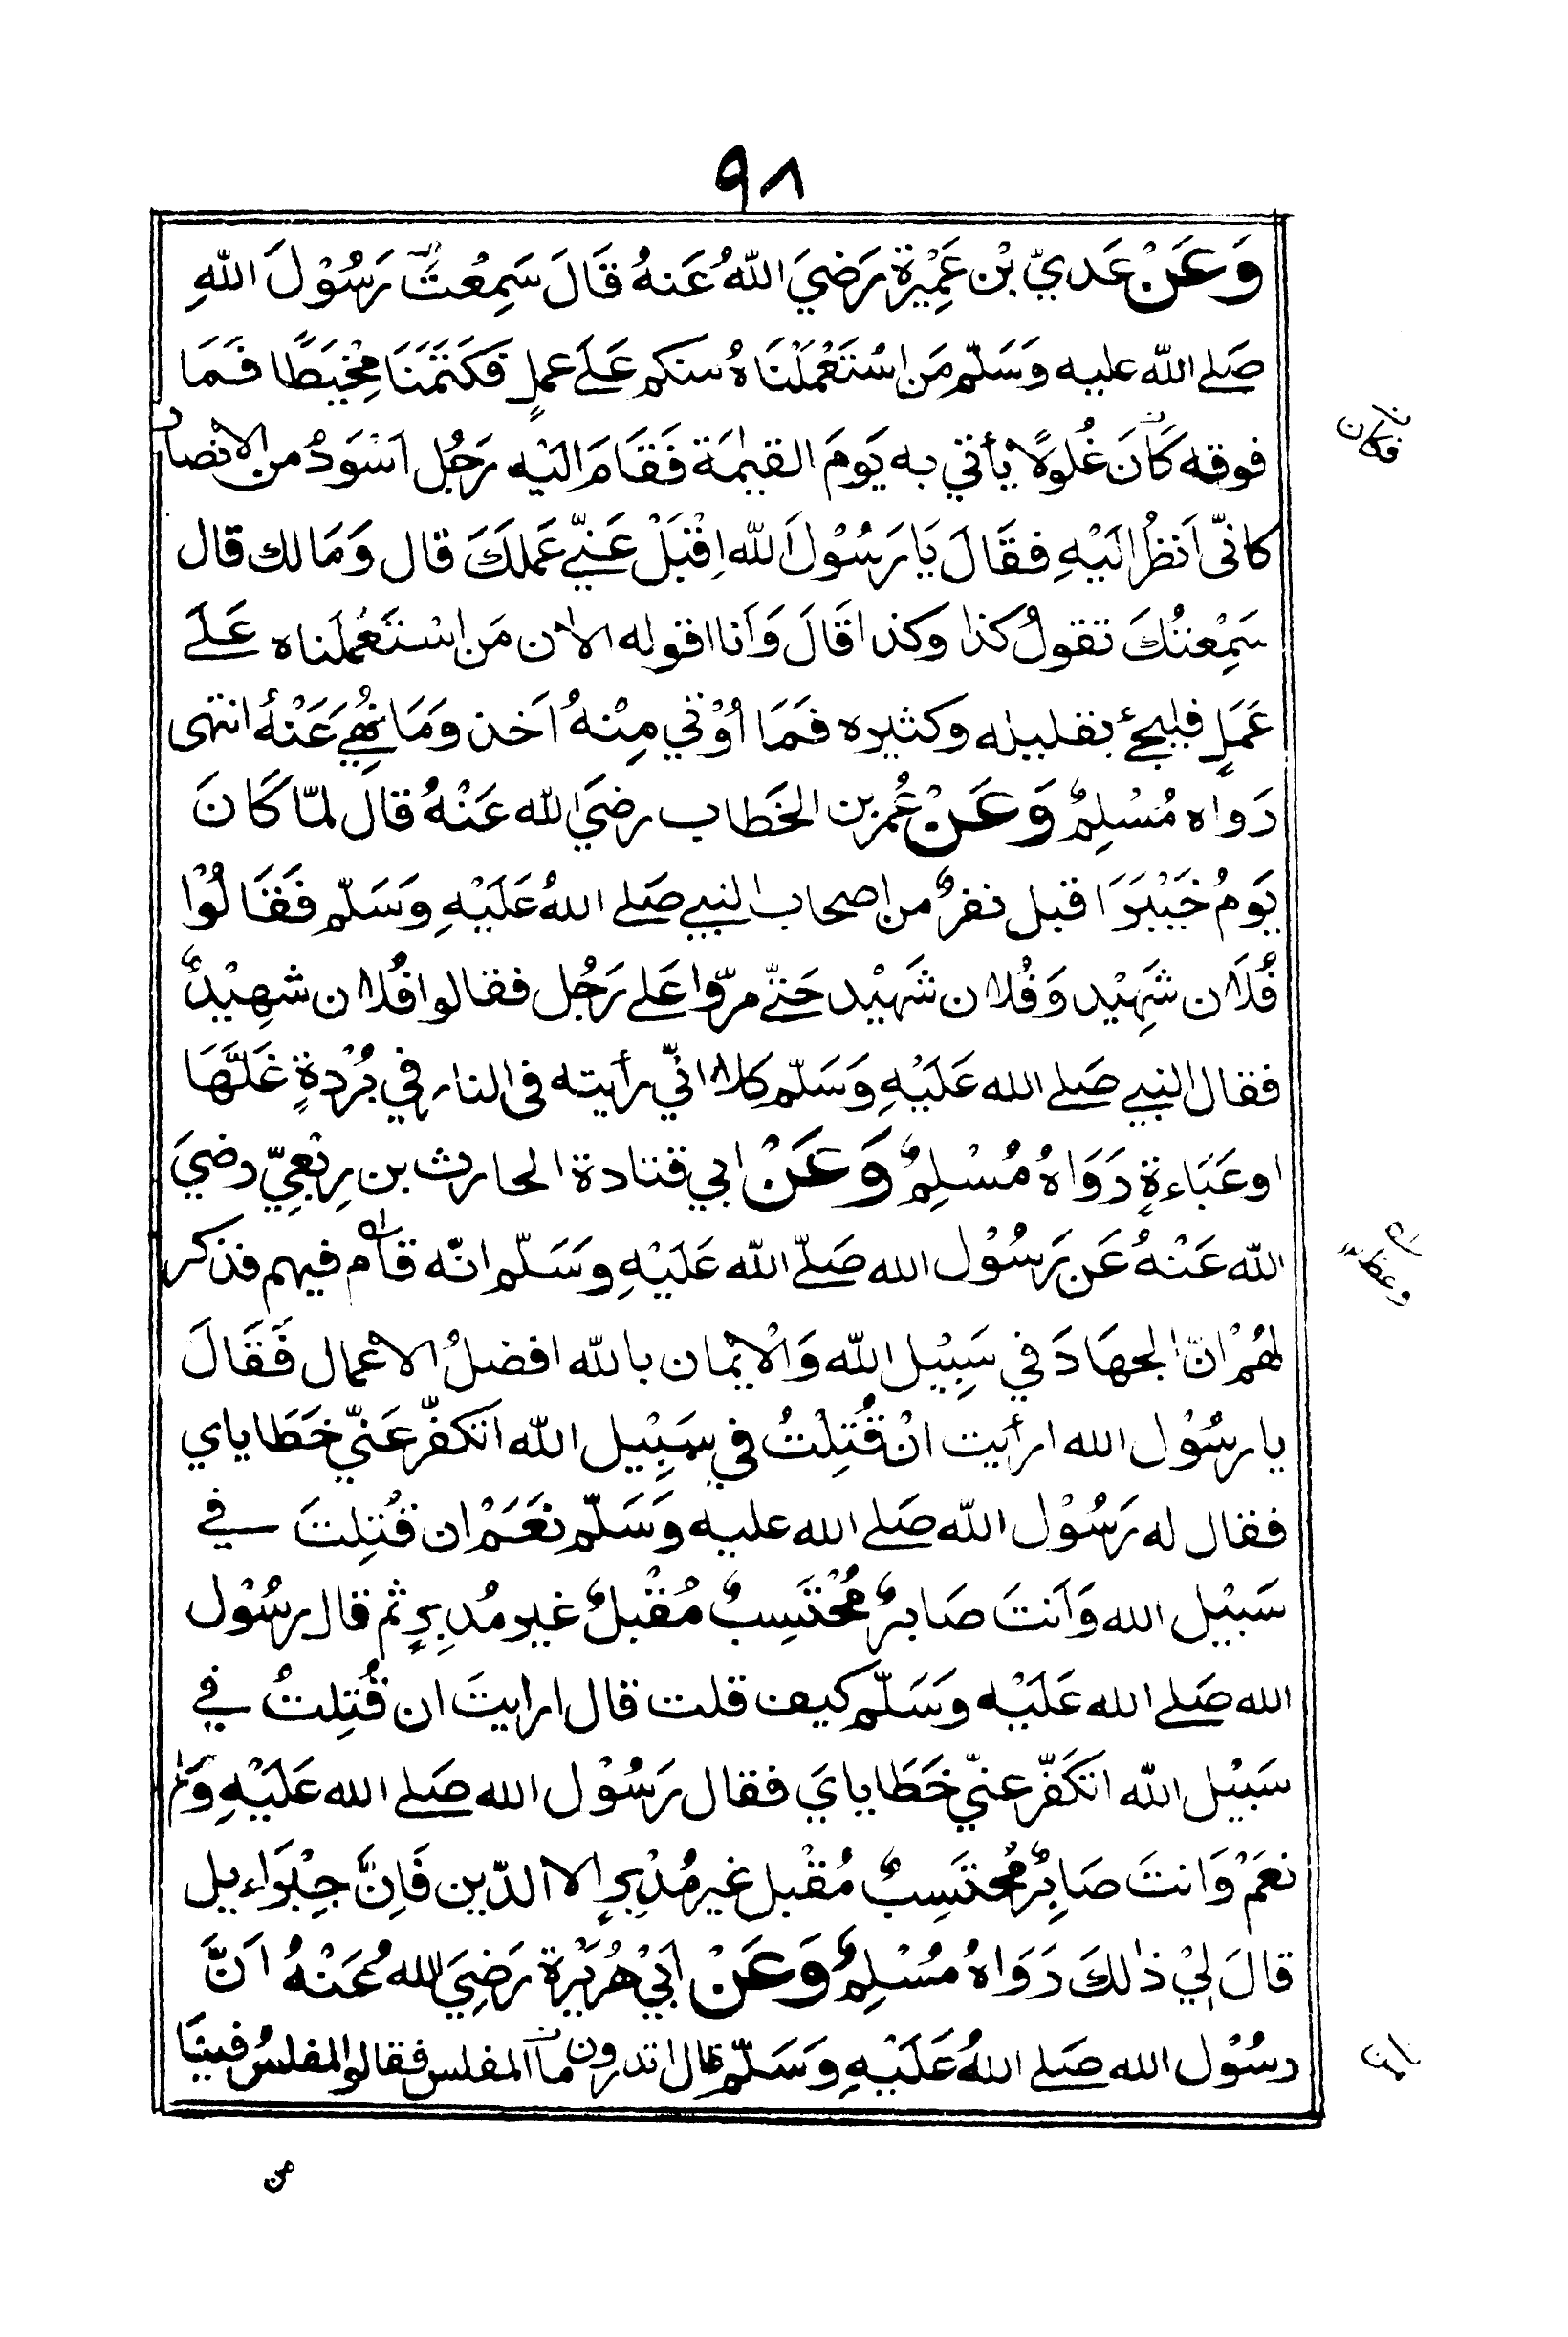 ٩٨
وَعَنْ عَديّ بْن عَمِيْرة رَضيَ اللهُ عَنهُ قَالَ سَمِعْتُ رَسُوْلَ اللهِ
صَلے الله عليه وَسَلّم مَن اسْتَعْمَلْنَاهُ منكم عَلَے عملٍ فَكَتَمَنَا مِخْيَطًا فَمَا
فوقه كَانَ غُلولًا يأتي به يَومَ القيٰمَة فَقَامَ اليْه رَجُل اَسْوَدُ من الانصار
كانّى اَنظُر اليْهِ فقَالَ يَا رَسُوْلَ الله اِقْبَلْ عَنّے عَملكَ قال وَمَا لك قال
سَمِعْتُكَ تقولُ كذا وكذا قَالَ وَاَنا اقوله الاٰن مَن اسْتَعْمَلَناه عَلَے
عَمَلٍ فليجئ بقليله وكثيره فَمَا اُوْتي مِنْهُ اَخذ وَمَا نُهِيَ عَنْهُ انتهى
رَواه مُسْلِمٌ وَعَنْ عُمر بن الخَطاب رضيَ الله عَنْهُ قال لمّا كَانَ
يَومُ خَيْبَرَ اَقبل نفرٌ من اصحاب النبي صَلے اللهُ عَلَيْهِ وَسَلّم فَقَالُوْا
فُلَان شَهِيْد وَفُلان شَهِيْد حَتّے مرّوا عَلے رَجُل فقالوا فُلان شهِيْدٌ
فقال النبي صَلے الله عَلَيْهِ وَسَلّم كلا انّي رأيته فى النار في بُرْدةٍ غَلَّهَا
او عَبَاءةٍ رَوَاهُ مُسْلِمٌ وَعَنْ ابي قتادة الحارث بن رِبْعِيّ رضيَ
الله عَنْهُ عَن رَسُوْل الله صَلّے الله عَلَيْهِ وسَلّم انّه قام فيهم فذكر
لهُمْ انّ الجهَادَ في سَبِيْل الله وَالْايْمان بالله افضلُ الاعمال فَقَالَ
يا رسُوْل الله ارأيت انْ قُتِلْتُ في سَبِيْل الله اَتكفّر عَنّي خَطَاياي
فقال له رَسُوْل الله صَلے الله عليه وَسَلّم نَعَمْ ان قُتِلتَ في
سَبيْل الله وَاَنتَ صَابرٌ مُحْتَسِبٌ مُقْبلٌ غير مُدبرٍ ثم قال رسُوْل
الله صَلے الله عَلَيْه وسَلّم كيف قلت قال ارايتَ ان قُتِلتُ في
سَبيْل الله اتكَفّر عنّي خَطَاياي فقال رَسُوْل الله صَلے الله عَلَيْهِ وَلم
نعَمْ وَانتَ صَابِرٌ مُحتَسِبٌ مُقْبل غير مُدْبرٍ الا الدّين فَاِنَّ جِبْرَاءيل
قالَ لِيْ ذٰلكَ رَوَاهُ مُسْلِمٌ وَعَنْ اَبيْ هُرَيْرة رَضِيَ الله عَنْهُ اَنَّ
رسُوْل الله صَلے اللهُ عَلَيْهِ وَسَلّم قال اتدرون ما المفلس فقالوا المفلسُ فينَا
فكان
من